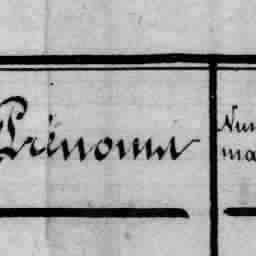 Prénoms
Nu
ma